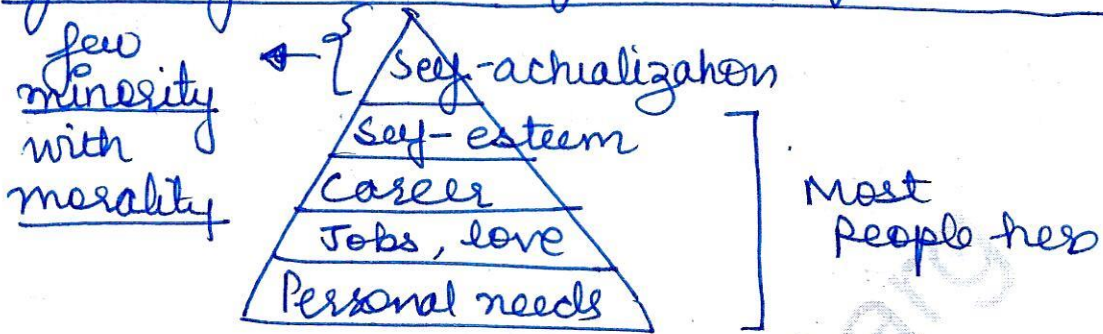 few
minority
with
morality
Self-actualization
Self-esteem
Career
Jobs, love
Personal needs
Most
People here